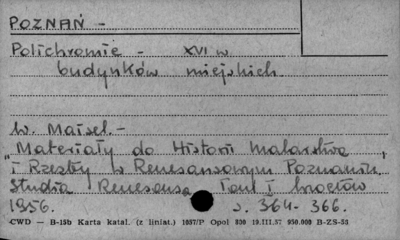 POZNAŃ –
Polichromie – XVI w
budynków miejskich.
W. Maisel. –
„Materiały do Historii Malarstwa
i Rzeźby w Renesansowym Poznaniu,
Studia Renesansu Tom I Wrocław
1956. s. 364 - 366.
CWD — B-15b Karta katal. (z liniat.) 1857/P Opol 830 19.III.57 950.000 B-ZS-53